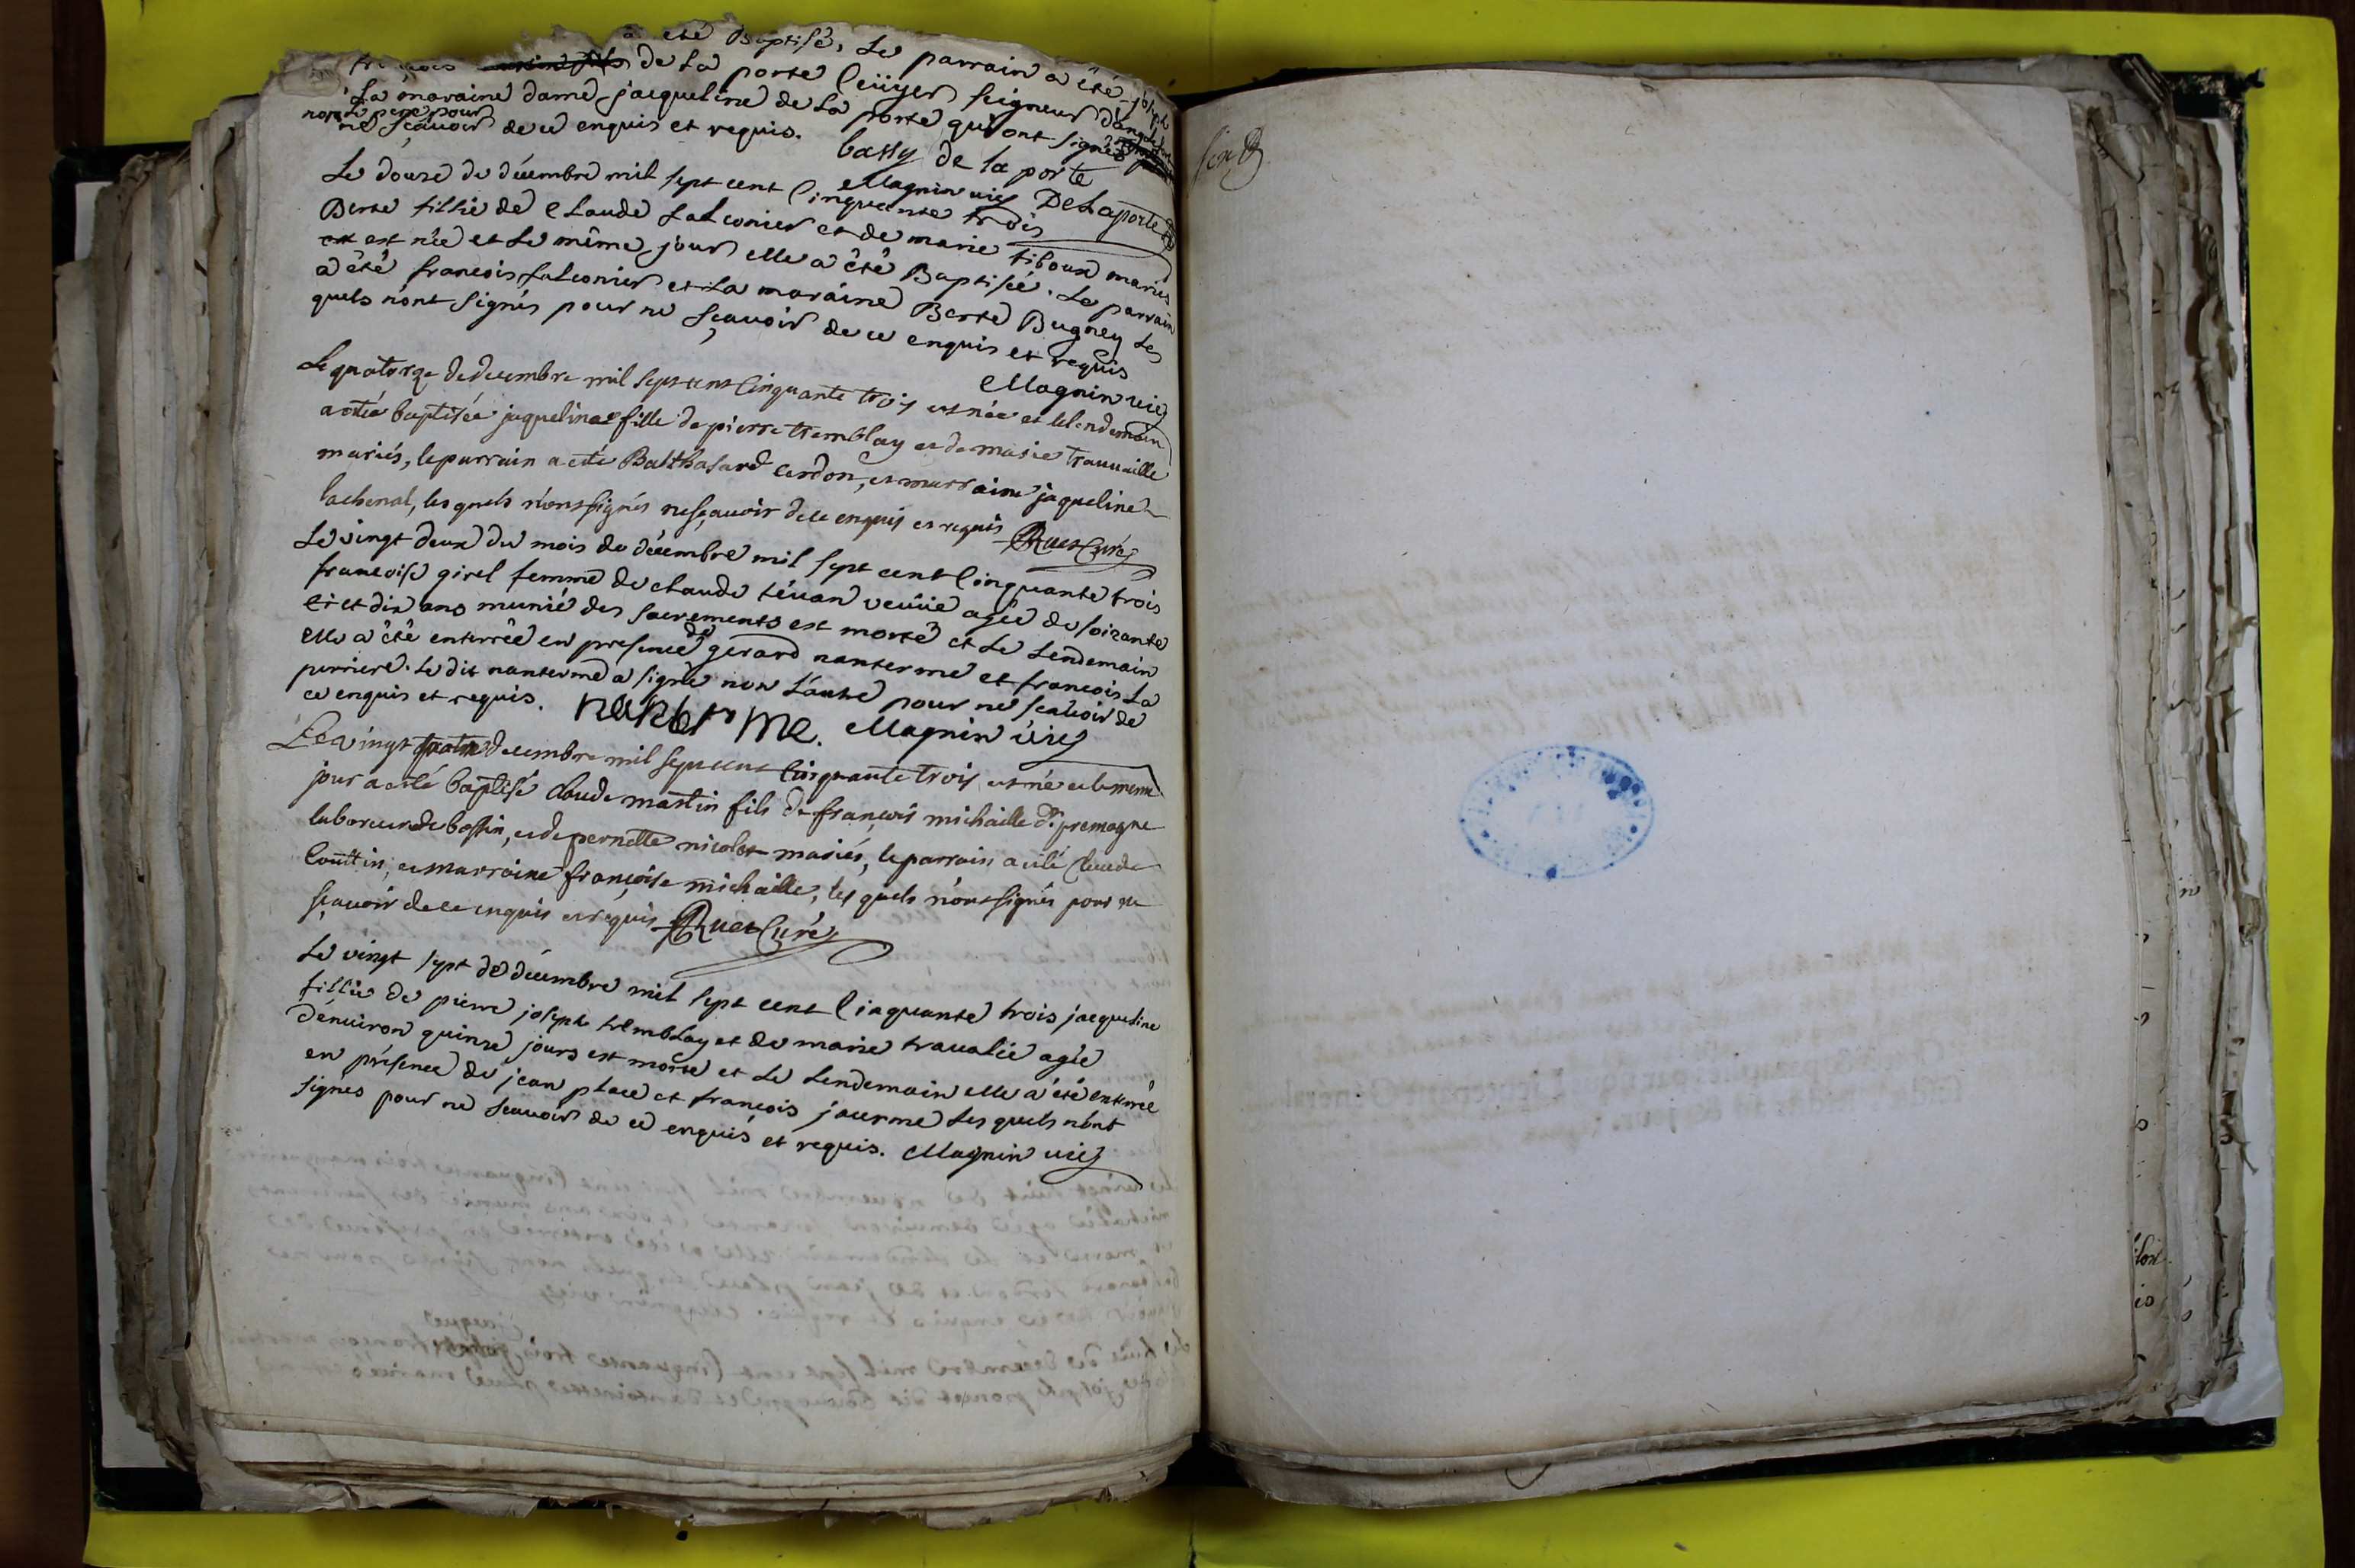 a eté Baptisé, Le parrain a êté joseph
françois de La porte Ecüyer seigneur d'anglefort
La maraine dame jacqueline de La porte qui ont signés
non Le pere pour
ne sçauoir de ce enquis et requis. bassy de la porte
Magnin vic DeLaporte
Le douze de décembre mil sept cent Cinquante trois
Berte fillie de Claude falconier et de marie tiboux mariés
est née et Le même jour elle a êté Baptisée. Le parrain
a êté francois falconier et La maraine Berte Bugney Les
quels n'ont signés pour ne sçauoir de ce enquis et requis
Magnin vic
Le quatorze de decembre mil sept cent Cinquante trois est née et le lendemain
a été baptisée jaqueline fille de pierre tremblay et de marie trauaille
mariés, le parrain a été Balthasard cerdon, et marraine jaqueline
lachenal, les quels n'ont signés ne sçauoir de ce enquis et requis Ruet Curé
Le vingt deux du mois de décembre mil sept cent Cinquante trois
francoise girel femme de claude téuan veüue agée de soixante
et dix ans munie des sacrements est morte et Le Lendemain
elle a êté enterrée en presence de gerard nanterme et francois La
perriere. Le dit nanterme a signé non L'autre pour ne scauoir de
ce enquis et requis. nanterme. Magnin vic
Le vingt quatre decembre mil sept cent Cinquante trois est né et le meme
jour a été baptisé Claude martin fils de françois michaille dt premagne
laboureur de bassin, et de pernette nicolet mariés, le parrain a été Claude
Couttin, et marraine françoise michaille, les quels n'ont signés pour ne
sçauoir de ce enquis et requis Ruet Curé
Le vingt sept de décembre mil sept cent Cinquante trois jacqueline
fillie de pierre joseph tremblay et de marie traualie agée
d'enuiron quinze jours est morte et Le Lendemain elle a êté enterrée
en présence de jean place et françois jacerme Les quels n'ont
signés pour ne scauoir de ce enquis et requis. Magnin vic